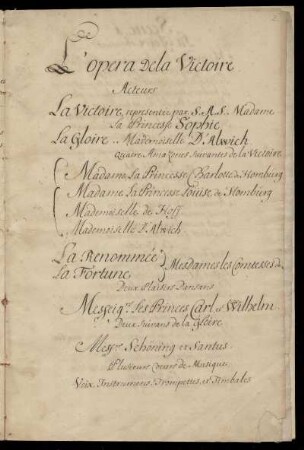 L'opera De la Victoire
Acteurs
La Victoire, representée par S. A. S. Madame
La Princesse Sophie,
La Gloire .. Mademoiselle D'Alwich
Quatre Amazones Suivantes de la Victoire
Madame La Princesse Charlotte de Homburg
Madame La Princesse Louise de Homburg
Mademoiselle de Hoff
Mademoiselle d'Alwich
La Renommée
La Fortune
Mesdames les Comtesses de
Deux Plaisirs Dansans
Messeigrs. Les Princes Carl et Wilhelm
Deux Suivans de la Gloire
Messrs. Schöning et Santus
Plusieurs Coeurs de Musique
Voix, Instrumens, Trompettes et Timbales